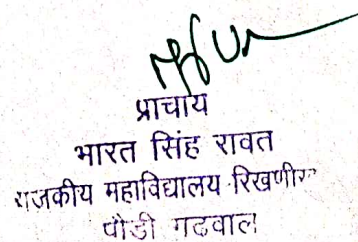 प्राचार्य
भारत सिंह रावत
राजकीय महाविद्यालय
पौड़ी गढवाल